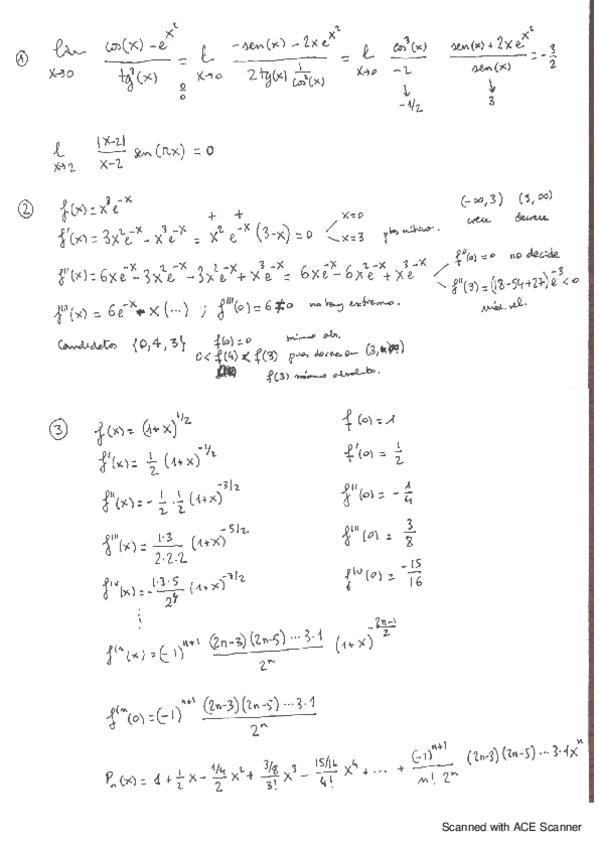 ① lim x→0 (cos(x) - e^x²) / tg²(x) = 0/0 l x→0 (-sen(x) - 2x e^x²) / (2 tg(x) 1/cos²(x)) = l x→0 cos³(x)/-2 (sen(x) + 2x e^x²)/sen(x) = -3/2
↓ -1/2 ↓ 3
l x→2 |x-2|/(x-2) sen(πx) = 0
② f(x) = x³e^-x (-∞, 3) (3, ∞)
f'(x) = 3x²e^-x - x³e^-x = x² e^-x (3-x) = 0 x=0 x=3 crece decrece
+ +
f''(x) = 6xe^-x - 3x²e^-x - 3x²e^-x + x³e^-x = 6xe^-x - 6x²e^-x + x³e^-x f''(0) = 0 no decide
f''(3) = (18-54+27)e^-3 < 0
f'''(x) = 6e^-x + x(...) ; f'''(0) = 6 ≠ 0 no hay extremo. máx. rel.
Candidatos {0, 4, 3} f(0) = 0 mínimo abs.
0 < f(4) < f(3) pues decrece en (3, ∞)
f(3) máximo absoluto.
③ f(x) = (1+x)^1/2 f(0) = 1
f'(x) = 1/2 (1+x)^-1/2 f'(0) = 1/2
f''(x) = -1/2 · 1/2 (1+x)^-3/2 f''(0) = -1/4
f'''(x) = 1·3/2·2·2 (1+x)^-5/2 f'''(0) = 3/8
f^IV(x) = -1·3·5/2⁴ (1+x)^-7/2 f^IV(0) = -15/16
⋮
f^(n(x) = (-1)^n+1 (2n-3)(2n-5)···3·1 / 2^n (1+x)^-(2n-1)/2
f^(n(0) = (-1)^n+1 (2n-3)(2n-5)···3·1 / 2^n
P_n(x) = 1 + 1/2 x - 1/4/2 x² + 3/8/3! x³ - 15/16/4! x⁴ + ··· + (-1)^n+1/n! 2^n (2n-3)(2n-5)···3·1x^n
Scanned with ACE Scanner